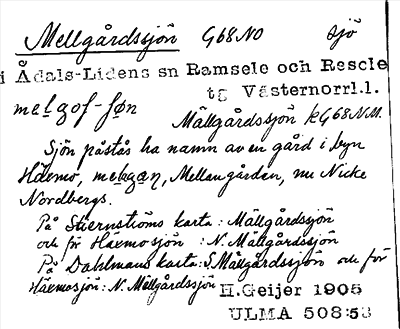 Mellgårdssjön G68NO sjö
i Ådals-Lidens sn Ramsele och Resele
tg Västernorrl.l.
Mällgårdssjön kG68N.M.
Sjön påstås ha namn av en gård i byn
Häxmo, Mellangården, nu Nicke
Nordbergs.
På Stiernströms karta: Mällgårdssjön
och för Häxmosjön : N. Mällgårdssjön
På Dahlmans karta: S. Mällgårdssjön och för
Häxmosjön: N. Mällgårdssjön H.Geijer 1905
ULMA 508:53